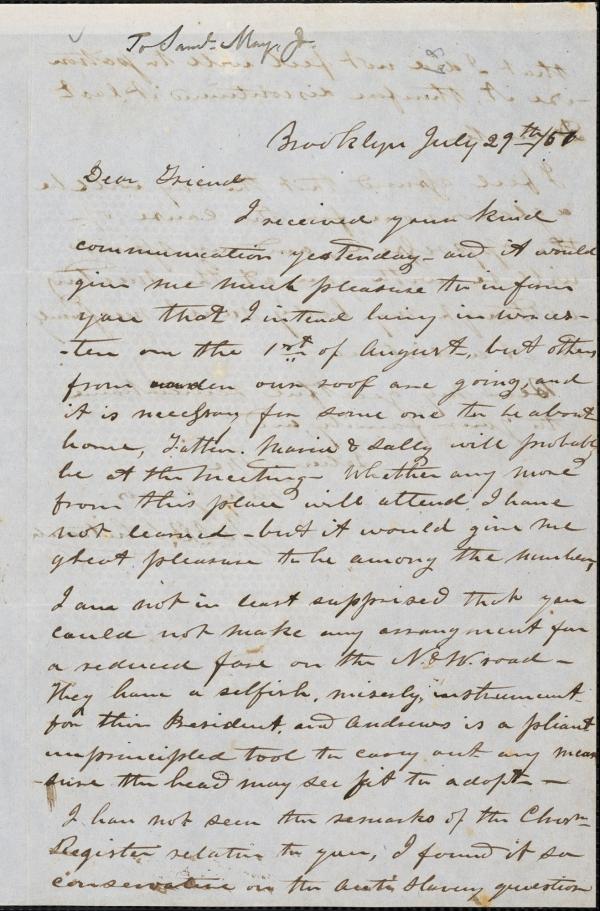 To Saml. May, Jr.
Brooklyn July 29th/50
Dear Friend
I received your kind
communication yesterday - and it would
give me much pleasure to inform
you that I intend being in Worces-
-ter on the 1st of August, but others
from under our roof are going, and
it is necessary for some one to be about
home, Father. Maria & Sally will probably
be at the meeting - Whether any more
from this place will attend I have
not learned - but it would give me
great pleasure to be among the number,
I am not in least supprised that you
could not make any arrangment for
a reduced fare on the N. & W. road -
They have a selfish, miserly, instrument
for thier President, and Andrews is a pliant
unprincipled tool to carry out any mea
sure the head may see fit to adopt -
I have not seen the remarks of the Chris-
Register relative to you, I found it so
conservative on the Anti Slavery question